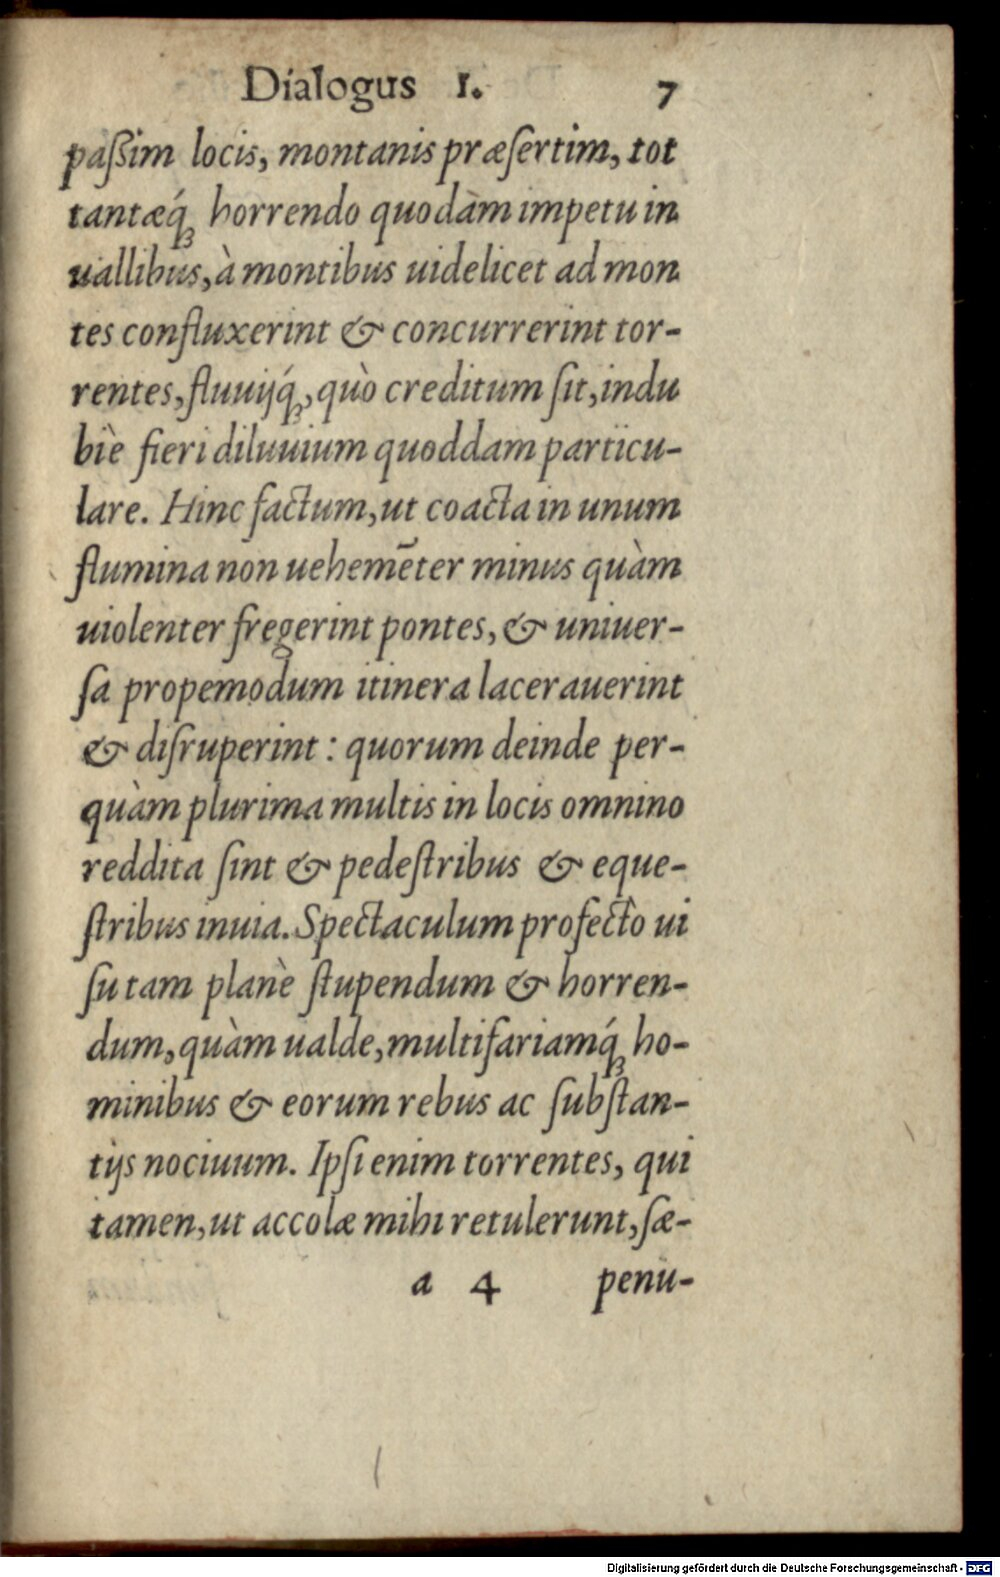 Dialogus 1. 7
paſsim locis, montanis præſertim, tot
tantæq́; horrendo quodàm impetu in
uallibus, à montibus uidelicet ad mon
tes confluxerint & concurrerint tor-
rentes, fluuijq́;, quò creditum ſit, indu
biè fieri diluuium quoddam particu-
lare. Hinc factum, ut coacta in unum
flumina non uehemēter minus quàm
uiolenter fregerint pontes, & uniuer-
ſa propemodum itinera lacerauerint
& diſruperint : quorum deinde per-
quàm plurima multis in locis omnino
reddita ſint & pedeſtribus & eque-
ſtribus inuia. Spectaculum profectò ui
ſu tam planè ſtupendum & horren-
dum, quàm ualde, multifariamq́; ho-
minibus & eorum rebus ac ſubſtan-
tijs nociuum. Ipſi enim torrentes, qui
tamen, ut accolæ mihi retulerunt, ſæ-
a 4 penu-
Digitalisierung gefördert durch die Deutsche Forschungsgemeinschaft - DFG